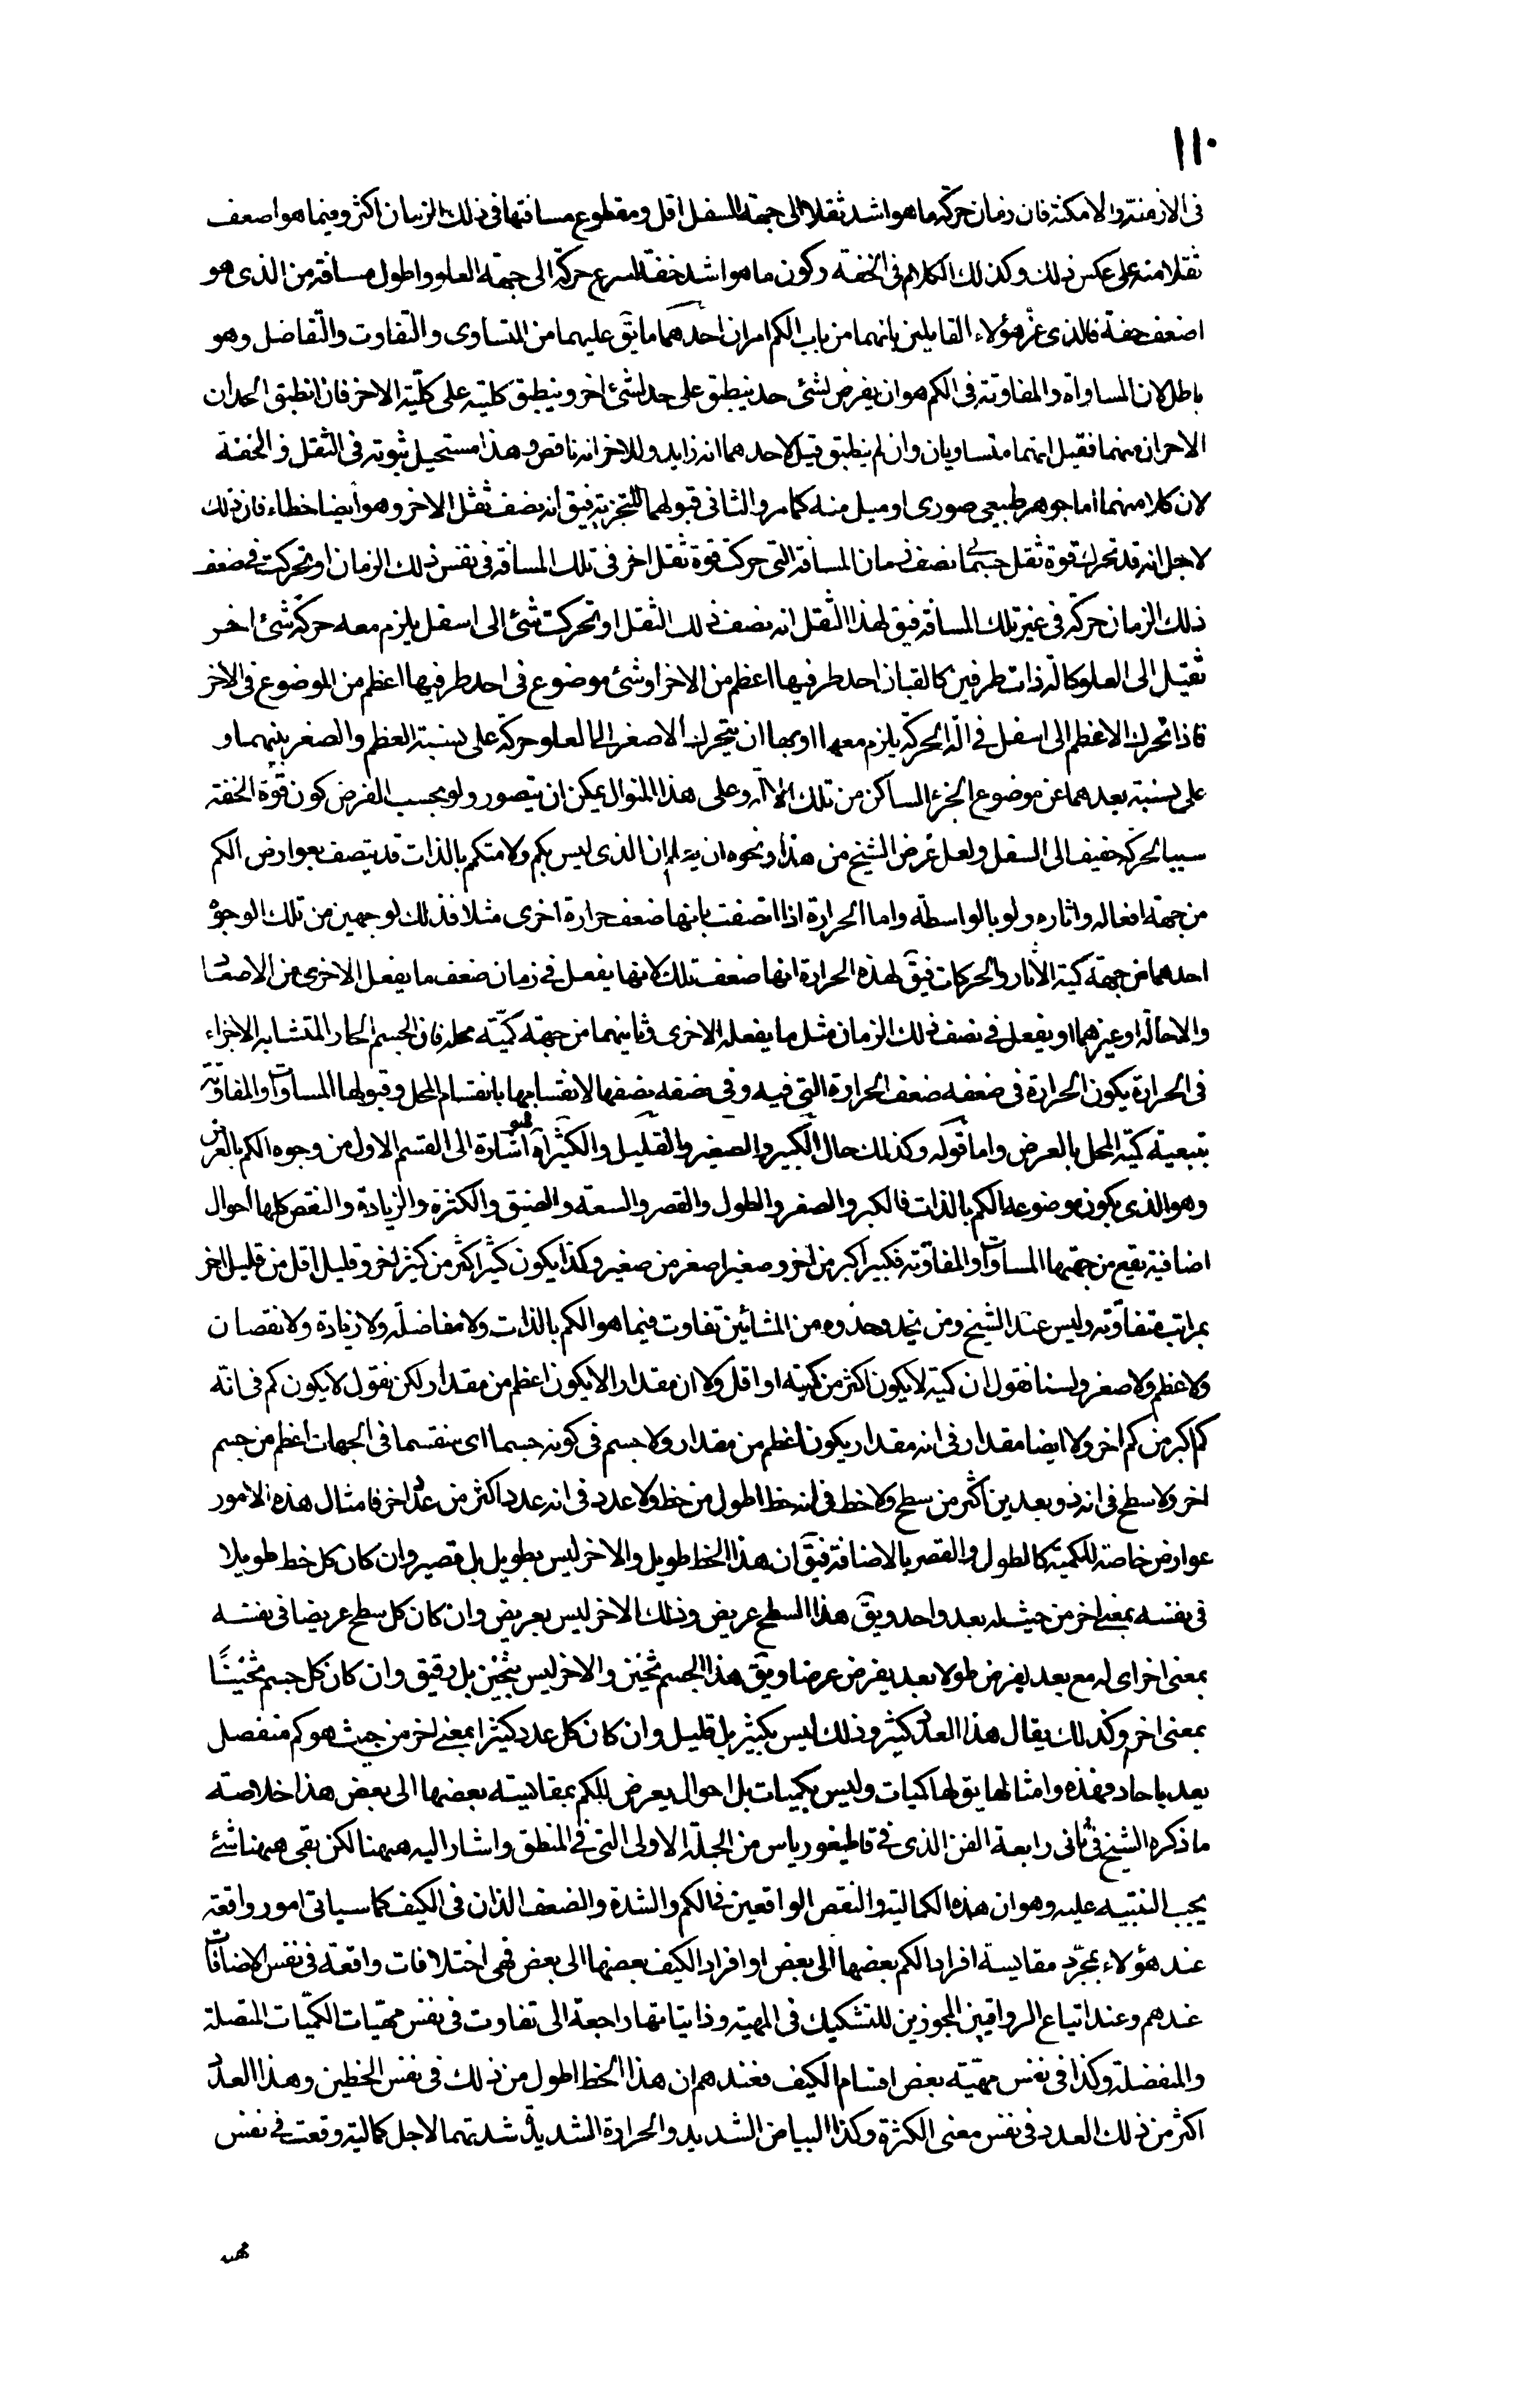 ١١٠
فى الازمنة والامكنة فان زمان حركة ما هو اشد ثقلا الى جهة السفل اقل ومقطوع مسافتها فى ذلك الزمان اكثر وفيما هو اضعف
ثقلا منه على عكس ذلك وكذلك الكلام فى الخفة وكون ما هو اشد خفة اسرع حركة الى جهة العلو واطول مسافة من الذى هو
اضعف خفة فالذى غر هؤلاء القايلين بانهما من باب الكم امران احدهما ما يق عليهما من التساوى والتفاوت والتفاضل وهو
باطل لان المساواة والمفاوتة فى الكم هو ان يفرض لشئ حد ينطبق على حد لشئ اخر وينطبق كليته على كلية الاخر فان انطبق الحدان
الاخران منهما فقيل انهما متساويان وان لم ينطبق قيل لاحدهما انه زايد وللاخر انه ناقص وهذا مستحيل ثبوته فى الثقل والخفة
لان كلا منهما اما جوهر طبيعى صورى او ميل منه كما مر والثانى قبولهما للتجزية فيق أنه نصف ثقل الاخر وهو ايضا خطاء فان ذلك
لاجل انه قد تحرك قوة ثقل جسما نصف زمان المسافة التى حركت قوة ثقل اخر فى تلك المسافة فى نفس ذلك الزمان او تحركت فى ضعف
ذلك الزمان حركة فى غير تلك المسافة فيق لهذا الثقل انه نصف ذلك الثقل او تحركت شئ الى اسفل يلزم معه حركة شئ اخر
ثقيل الى العلو كالة ذات طرفين كالقبان احد طرفيها اعظم من الاخر او شئ موضوع فى احد طرفيها اعظم من الموضوع فى الاخر
فاذا تحرك الاعظم الى اسفل فى الة الحركة يلزم معها او بها ان يتحرك الاصغر الى العلو حركة على نسبة العظم والصغر بينهما و
على نسبة بعدهما عن موضوع الجزء الساكن من تلك الالة وعلى هذا المنوال يمكن ان يتصور ولو بحسب الفرض كون قوة الخفة
سببا لحركة خفيف الى السفل ولعل غرض الشيخ من هذا ونحوه ان الذى ليس بكم ولا متكم بالذات قد يتصف بعوارض الكم
من جهة افعاله واثاره ولو بالواسطة واما الحرارة اذا اتصفت بانها ضعف حرارة اخرى مثلا فذلك لوجهين من تلك الوجوه
احدهما من جهة كمية الاثار والحركات فيق لهذه الحرارة انها ضعف تلك لانها يفعل فى زمان ضعف ما يفعل الاخرى من الاصعاد
والاحالة او غيرهما او يفعل فى نصف ذلك الزمان مثل ما يفعله الاخرى وثانيهما من جهة كمّية محله فان الجسم الحار المتشابه الاجزاء
فى الحرارة يكون الحرارة فى ضعفه ضعف الحرارة التى فيه وفى نصفه نصفها لانقسامها بانقسام المحل وقبولها المساواة والمفاوتة
بتبعية كمية المحل بالعرض واما قوله وكذلك حال الكبير والصغير والقليل والكثير آه فهو اشارة الى القسم الاول من وجوه الكم بالعرض
وهو الذى يكون موضوعه الكم بالذات فالكبر والصغر والطول والقصر والسعة والضيق والكثرة والزيادة والنقص كلها احوال
اضافية يقع من جهتها المساواة والمفاوتة فكبير اكبر من اخر وصغير اصغر من صغير وكذا يكون كثير اكثر من كثير اخر وقليل اقل من قليل اخر
بمراتب متفاوتة وليس عند الشيخ ومن يحذو حذوه من المشائين تفاوت فيما هو الكم بالذات ولا مفاضلة ولا زيادة ولا نقصان
ولا عظم ولا صغر ولسنا نقول ان كمية لا يكون اكثر من كمية او اقل ولا ان مقدارا لا يكون اعظم من مقدار لكن نقول لا يكون كم فى انّه
كم اكبر من كم اخر ولا ايضا مقدار فى انه مقدار يكون اعظم من مقدار ولا جسم فى كونه جسما اى منقسما فى الجهات اعظم من جسم
اخر ولا سطح فى انه ذو بعدين اكثر من سطح ولا خط فى انه خط اطول من خط ولا عدد فى انه عدد اكثر من عدد اخر فامثال هذه الامور
عوارض خاصة للكمية كالطول والقصر بالاضافة فيق ان هذا الخط طويل والاخر ليس بطويل بل قصير وان كان كل خط طويلا
فى نفسه بمعنى اخر من حيث له بعد واحد ويق هذا السطح عريض وذلك الاخر ليس بعريض وان كان كل سطح عريضا فى نفسه
بمعنى اخر اى له مع بعد يفرض طولا بعد يفرض عرضا ويق هذا الجسم ثخين والاخر ليس بثخين بل رقيق وان كان كل جسم ثخينًا
بمعنى اخر وكذلك يقال هذا العدد كثير وذلك ليس بكثير بل قليل وان كان كل عدد كثيرا بمعنى اخر من حيث هو كم منفصل
يعد باحاد فهذه وامثالها يق لها كميات وليس بكميات بل احوال يعرض للكم بمقايسة بعضها الى بعض هذا خلاصة
ما ذكره الشيخ فى ثانى رابعة الفن الذى فى قاطيغورياس من الجملة الاولى التى فى المنطق واشار اليه ههنا لكن بقى ههنا شئ
يجب التنبيه عليه وهو ان هذه الكمالية والنقص الواقعين فى الكم والشدة والضعف الذان فى الكيف كما سياتى امور واقعة
عند هؤلاء بمجرّد مقايسة افراد الكم بعضها الى بعض او افراد الكيف بعضها الى بعض فهى اختلافات واقعة فى نفس الاضافات
عندهم وعند اتباع الرواقيين المجوزين للتشكيك فى المهية وذاتياتها راجعة الى تفاوت فى نفس مهيّات الكمّيات المتصلة
والمنفصلة وكذا فى نفس مهيّة بعض اقسام الكيف فعندهم ان هذا الخط اطول من ذلك فى نفس الخطين وهذا العدد
اكثر من ذلك العدد فى نفس معنى الكثرة وكذا البياض الشديد والحرارة الشديدة شدتهما لاجل كمالية وقعت فى نفس